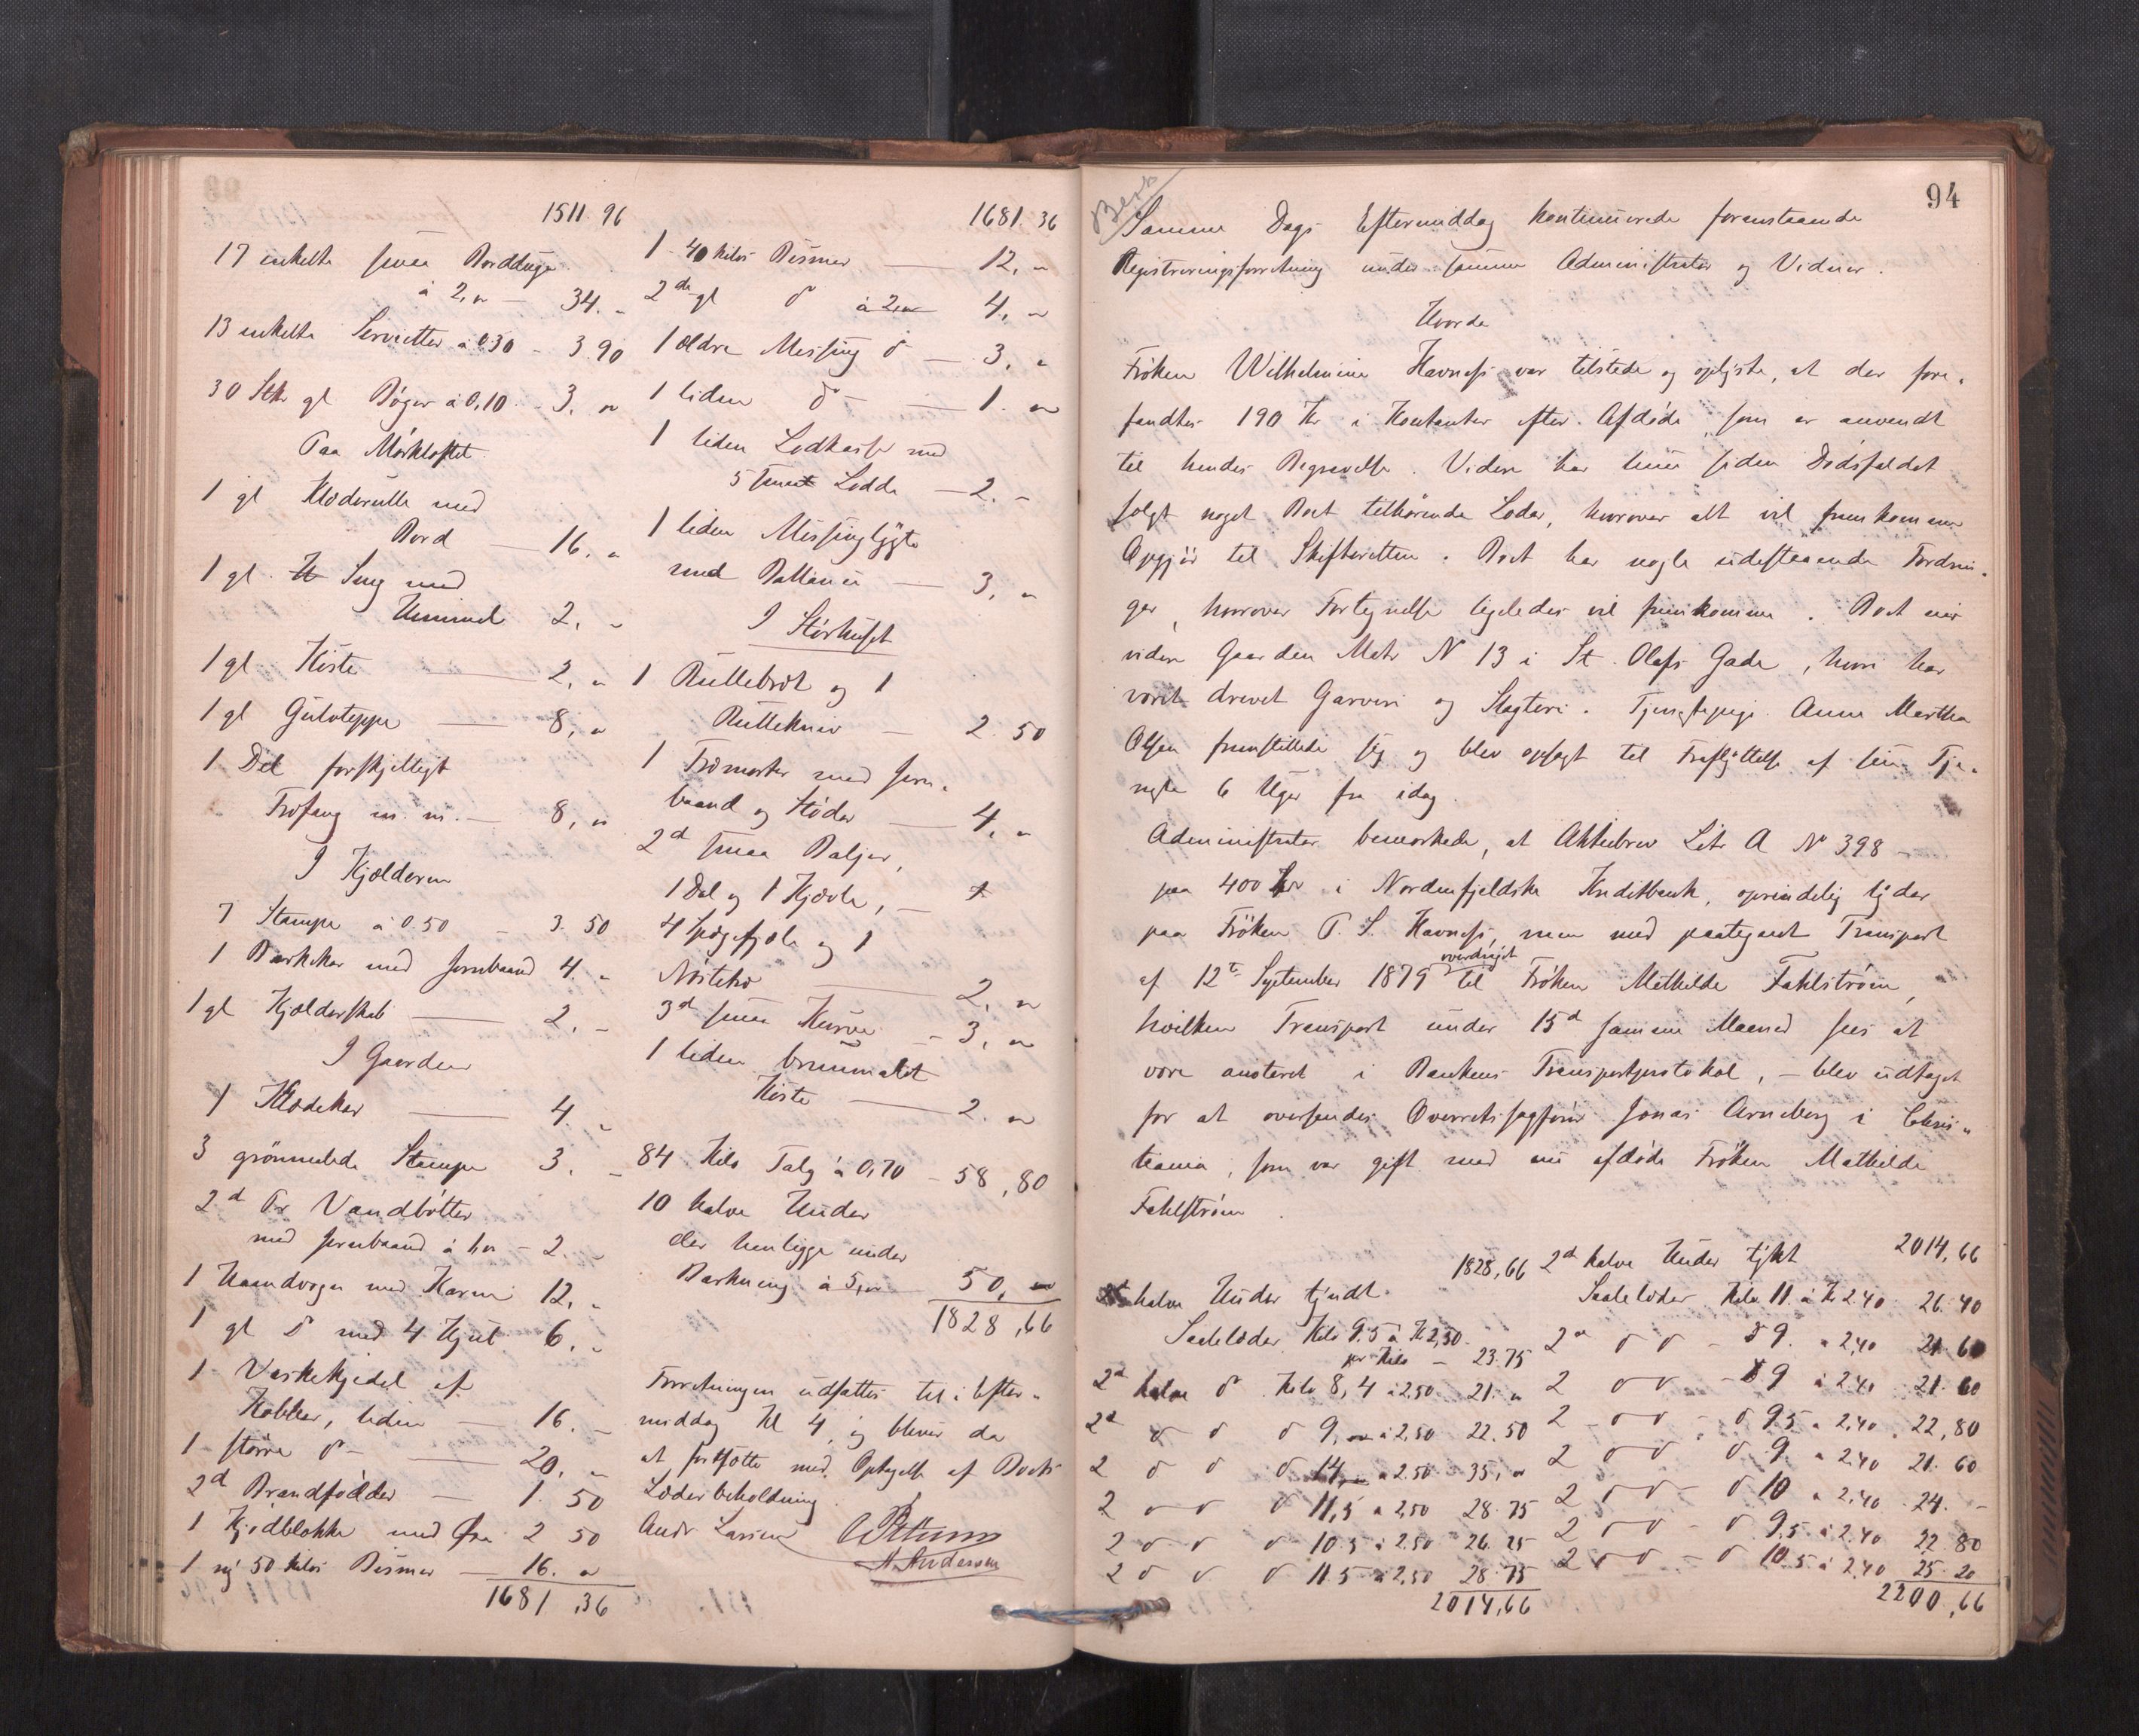 1511 96
17 enkelte smaa Borddüge
à 2,„ — 34. „
13 enkelte Servietter à 0.30 — 3 90
30 Stk gl Bøger à 0,10 — 3. „
Paa Mørkloftet
1 gl Klæderulle med
Bord — 16. „
1 gl. Seng med
2. „
1 gl Kiste — 2, „
1 gl Gulvteppe — 8, „
1 Del forskjelligt
Træfang m. m. — 8, „
I Kjælderen
7 Stampe à 0.50 — 3. 50
1 Barkekar med Jernbaand 4. „
1 gl Kjælderskab — 2. „
I Gaarden
1 Klædekar — 4. „
3 grønmalede Stampe 3. „
2d Pr Vandbøtter
med Jernbaand à 1,„ — 2. „
1 Haandvogn med Karm 12, „
1 gl do med 4 Hjul 6. „
1 Vaskekjedel af
Kobber, liden — 16. „
1 større do — 20. „
2d Brandfødder — 1. 50
1 Kjødblokke med Øxe 2 50
1 ny 50 Kilos Bismer — 16. „
1681,36
1681 36
1 40 Kilos Bismer — 12, „
2de gl do à 2,„ 4, „
1 ældre Messing do — 3, „
1 liden do — 1. „
1 liden Lodkasse med
5 smaa Lodde — 2. „
1 liden Messinglygte
med Ballance — 3, „
I Størhuset
1 Rullebræt og 1
Rullekniv — 2. 50
1 Træmorter med Jern„
baand og Støder — 4, „
2d smaa Baljer,
1 Dal og 1 Kjævle, —
4 Spegefjæle og 1
Nøstetræ — 2. „
3d smaa Kurve — 3, „
1 liden brunmalet
Kiste — 2. „
84 Kilo Talg à 0,70 — 58,80
10 halve Huder
der henligge under
Barkning à 5,„ 50, „
1828,66
Forretningen udsattes til i Efter„
middag Kl 4, og bliver da
at fortsætte med Optagelse af Boets
Læderbeholdning.
Andr Larsen
A. Andersen
94
Samme Dags Eftermiddag kontinuerede foranstaaende
Registreringsforretning under samme Administrator og Vidner.
Hvorda
Frøken Wilhelmine Havness var tilstede og oplyste, at der fore„
fandtes 190 Kr i Kontanter efter Afdøde, som er anvendt
til hendes Begravelse. Videre har hun siden Dødsfaldet
solgt noget Boet tilhørende Læder, hvorover alt vil fremkomme
Opgjør til Skifteretten. Boet har nogle udestaaende Fordrin„
ger, hvorover Fortegnelse ligeledes vil fremkomme. Boet eier
videre Gaarden Matr N 13 i St. Olafs Gade, hvori har
været drevet Garveri og Slagteri. Tjenestepige Anne Martha
Olsen fremstillede sig og blev opsagt til Fraflyttelse af sin Tje„
neste 6 Uger fra idag.
Administrator bemærkede, at Aktiebrev Litr A No 398 —
paa 400 Kr i Nordenfjeldske Kreditbank, oprindelig lyder
paa Frøken P. S. Havness, men med paategnet Transport
af 12te September 1879 overdraget til Frøken Mathilde Fahlstrøm,
hvilken Transport under 15d samme Maaned sees at
være anoteret i Bankens Transportprotokol, — blev udtaget
for at oversendes Overretssagfører Jonas Arneberg i Chris„
tiania, som var gift med nu afdøde Frøken Mathilde
Fahlstrøm.
1828,66
2d halve Huder tyndt
Saalelæder Kilo 9.5 à Kr 2,50.
per Kilo — 23.75
2d halve do Kilo 8,4 à 2,50 21. „
2d do do do 9, „ à 2,50 22.50
2 do do do 14, „ à 2.50 35, „
2 do do do 11,5 à 2,50 28.75
2 do do do 10.5 à 2.50 26.25
2 do do do 11.5 à 2,50 28.75
2014,66
2014,66
2d halve Huder tykt
Saalelæder Kilo 11. à Kr 2.40 26.40
2d do do — do 9. à 2,40 21.60
2 do do — do 9 à 2.40 21.60
2 — do do — do 9.5 à 2,40 22,80
2 do do do 9. à 2.40 21.60
2 do do — do 10 à 2,40 24. —
2 do do — do 9.5 à 2.40 22.80
2 do do — do 10.5 à 2,40 25.20
2200,66